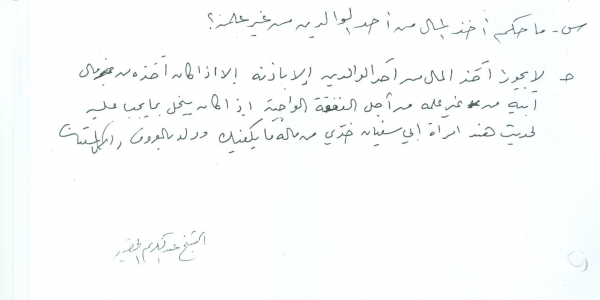 س - ما حكم أخذ المال من أحد الوالدين من غير علمه؟
ج لا يجوز أخذ المال من أحد الوالدين إلا بإذنه إلا إذا كان أخذه من مال
أبيه من غير علمه من أجل النفقة الواجبة إذا كان يبخل بما يجب عليه
لحديث هند امرأة أبي سفيان خذي من ماله ما يكفيك وولدك بالمعروف
الشيخ عبد الكريم الخضير